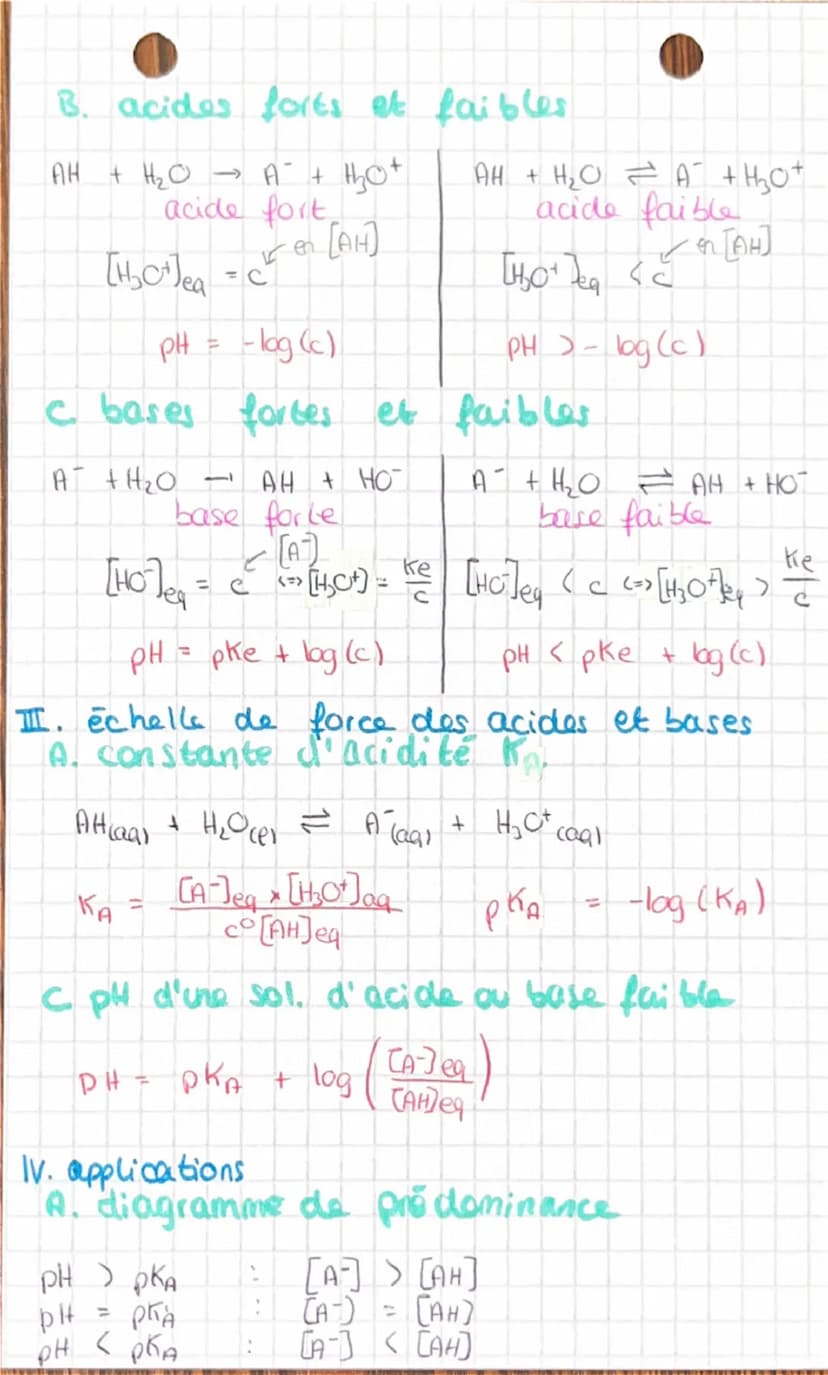 B. acides forts et faibles
AH + H₂O → A⁻ + H₃O⁺
acide fort
en [AH]
[H₃O⁺]eq = c
pH = -log(c)
AH + H₂O ⇌ A⁻ + H₃O⁺
acide faible
en [AH]
[H₃O⁺]eq < c
pH > - log(c)
C bases fortes et faibles
A⁻ + H₂O → AH + HO⁻
base forte
[A⁻]
[HO⁻]eq = c <=> [H₃O⁺] = Ke/c
pH = pKe + log(c)
A⁻ + H₂O ⇌ AH + HO⁻
base faible
[HO⁻]eq < c <=> [H₃O⁺]eq > Ke/c
pH < pKe + log(c)
III. échelle de force des acides et bases
A. constante d'acidité KA
AH(aq) + H₂O(l) ⇌ A⁻(aq) + H₃O⁺(aq)
KA = [A⁻]eq × [H₃O⁺]aq / c°[AH]eq pKA = -log(KA)
C pH d'une sol. d'acide ou base faible
pH = pKA + log([A⁻]eq / [AH]eq)
IV. applications
A. diagramme de prédominance
pH > pKA : [A⁻] > [AH]
pH = pKA : [A⁻] = [AH]
pH < pKA : [A⁻] < [AH]